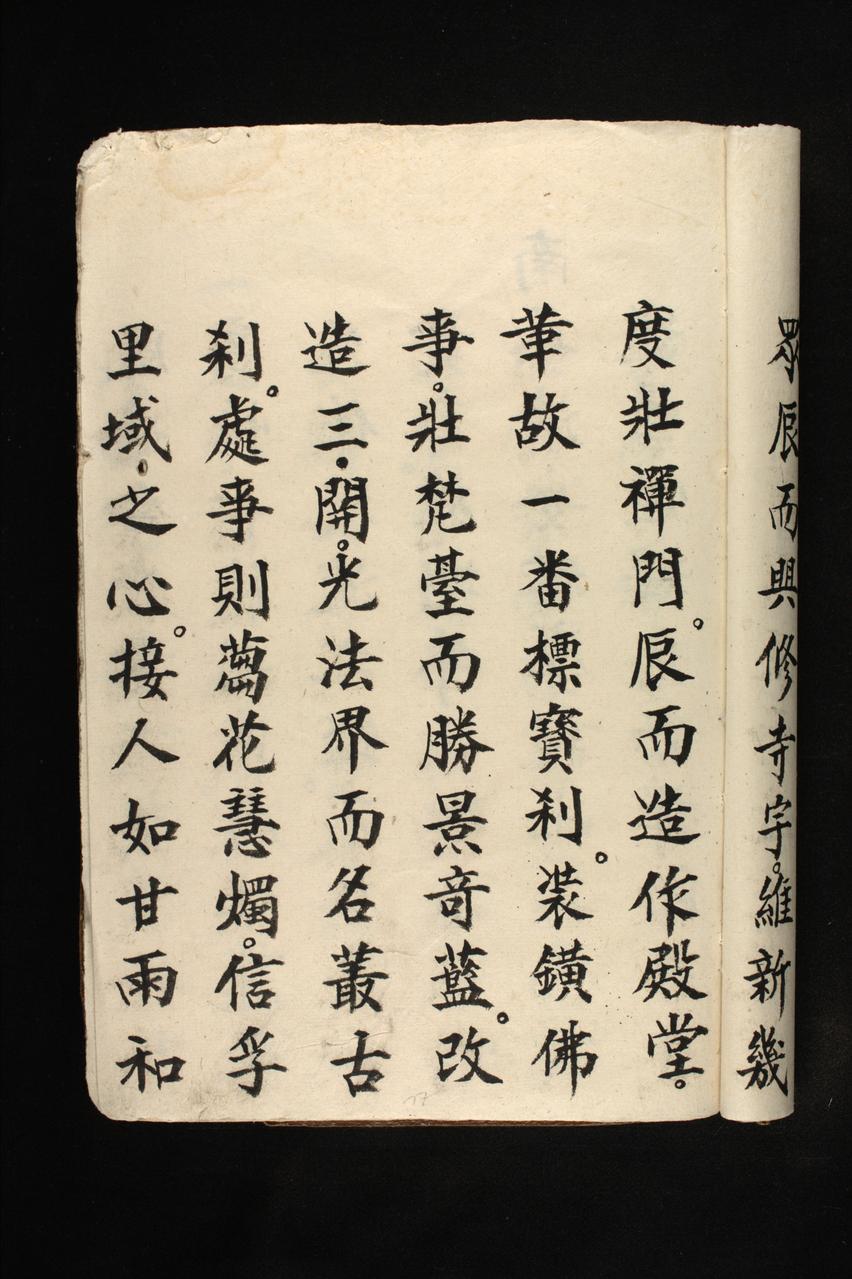 眾辰而興修寺宇。維新幾
度壯禪門。辰而造作殿堂。
革故一番標寶刹。裝鐄佛
事。壯梵臺而勝景竒藍。改
造三開。光法界而名叢古
刹。處事則蕅花慧燭。信孚
里域之心。接人如甘雨和